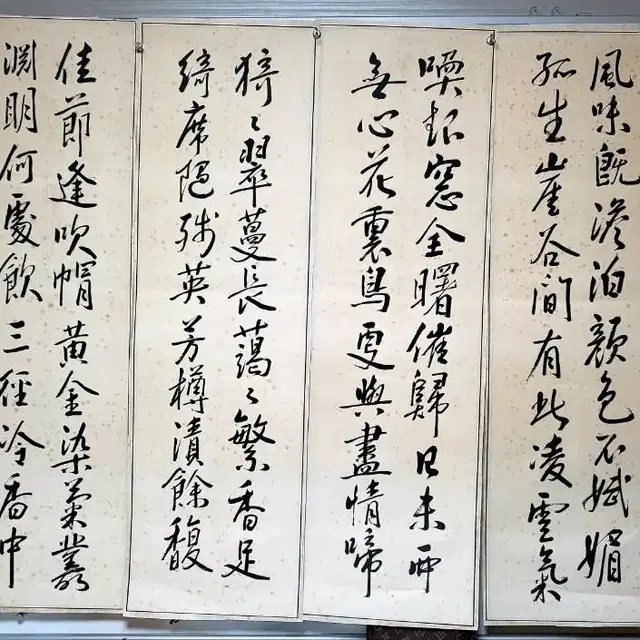 風味既淡泊顏色不娬媚
孤生崖谷間有此凌雲氣
喚起窓全曙催歸日未西
無心花裏鳥更與盡情啼
猗々翠蔓長藹々繁香足
綺席墮殘英芳樽漬餘馥
佳節逢吹帽黃金染菊叢
淵明何處飲三徑冷香中